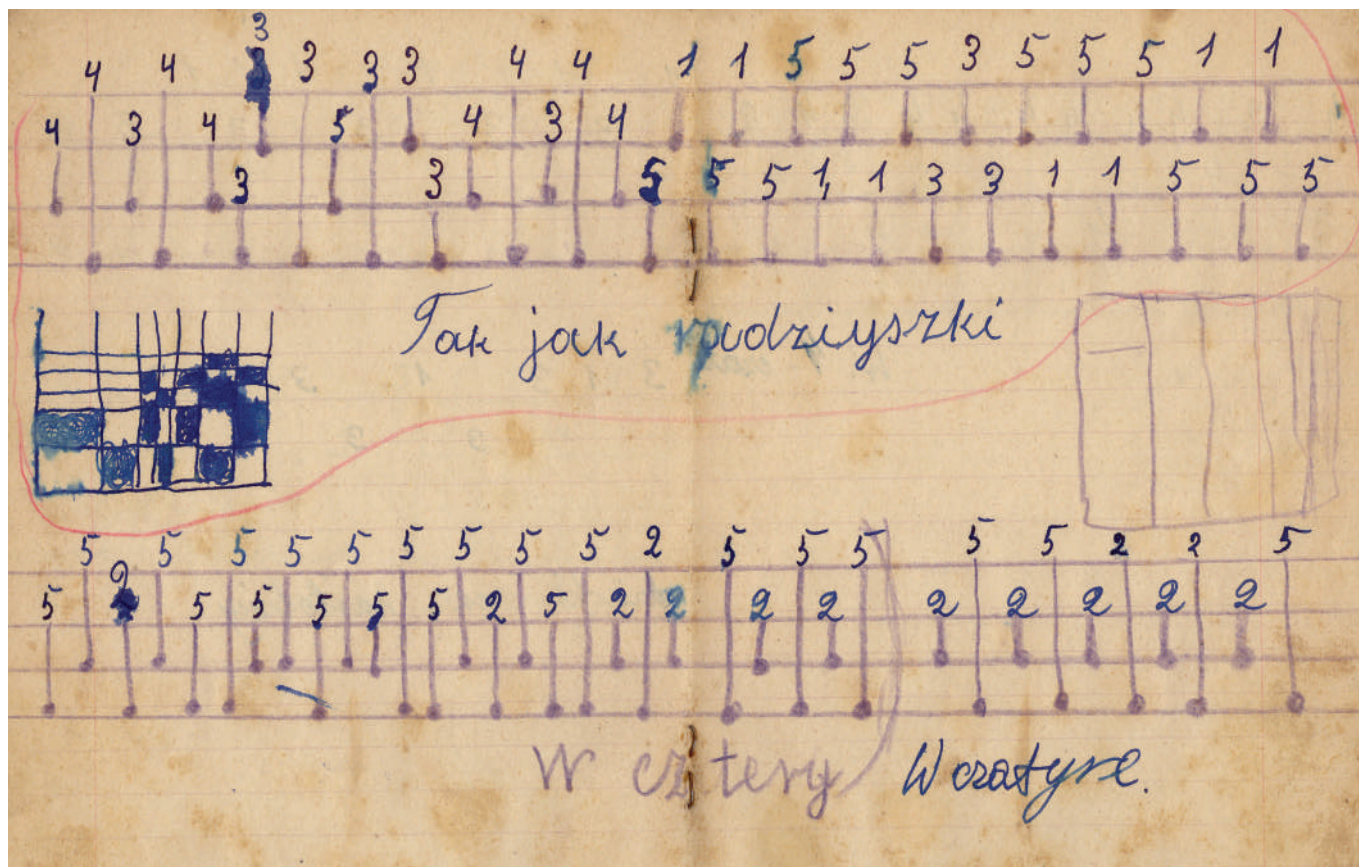 3
4 4 3 3 3 3 4 4 1 1 5 5 5 3 5 5 5 1 1
4 3 4 5 4 3 4
3 3 5 5 5 1, 1 3 3 1 1 5 5 5
Tak jak radziyszki
5 5 5 5 5 5 5 5 5 2 5 5 5 5 5 2 2 5
5 2 5 5 5 5 5 2 5 2 2 2 2 2 2 2 2 2
W cztery W czatyre.